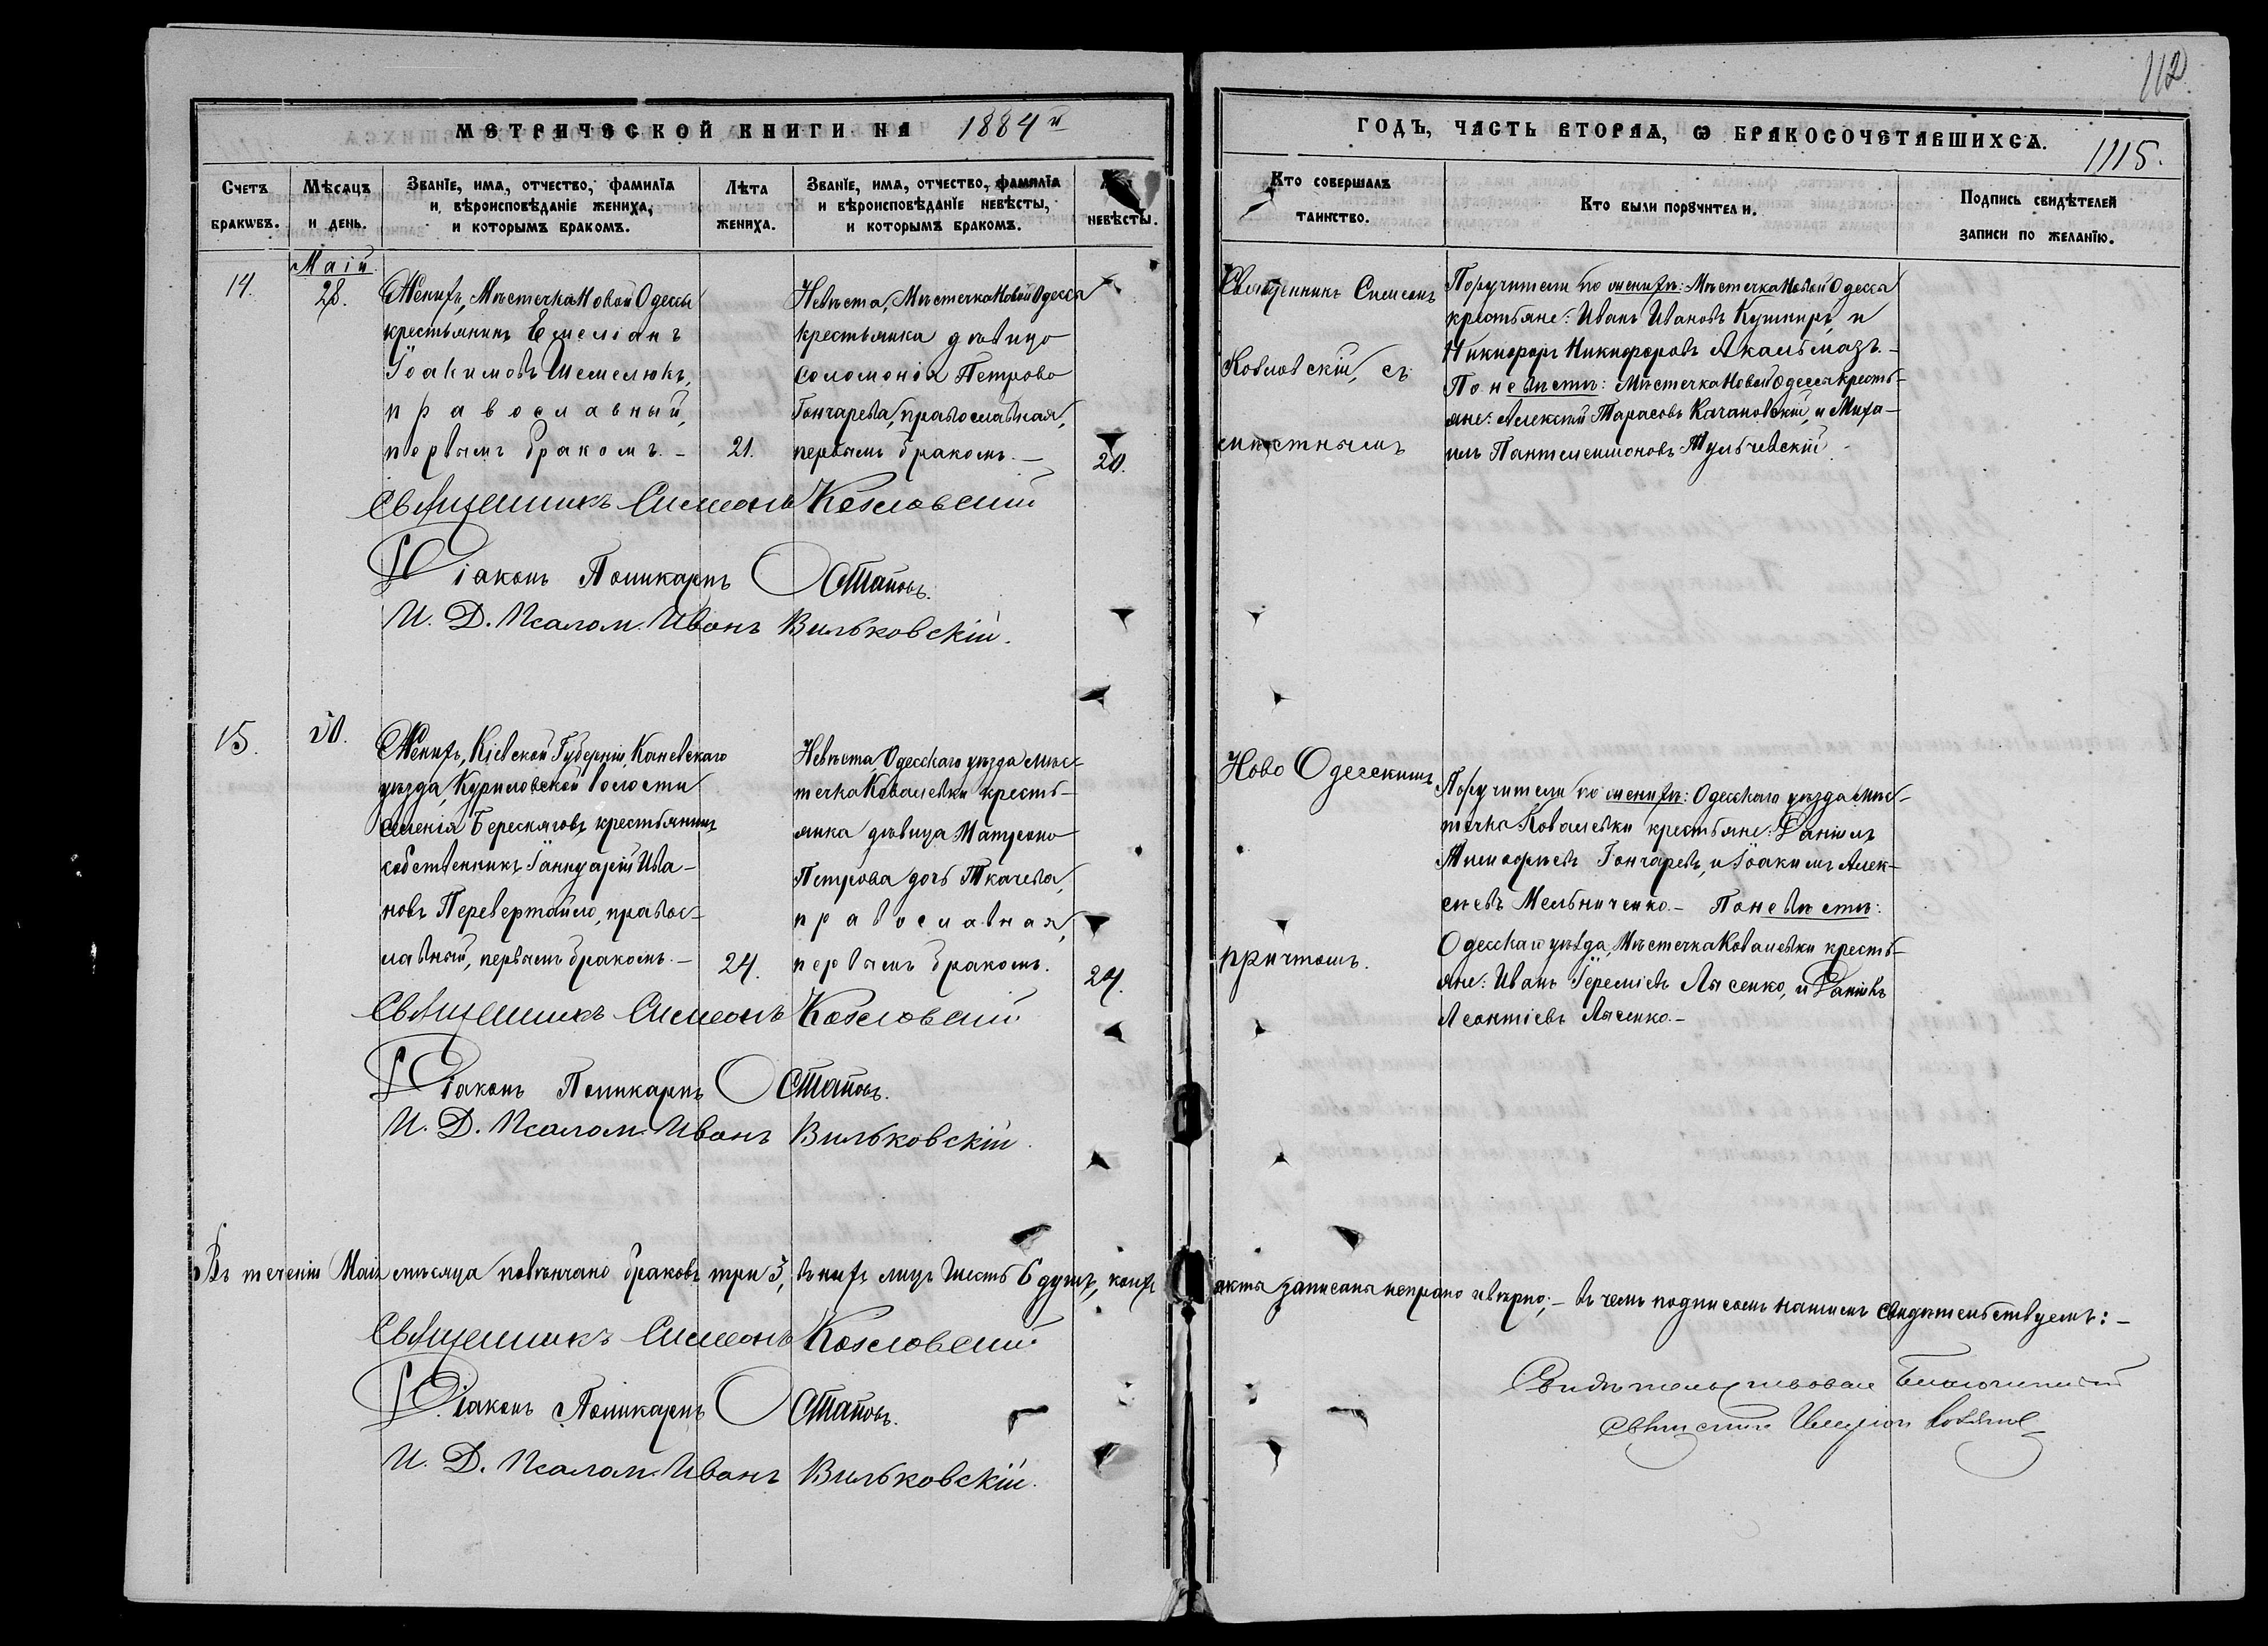 112
МЕТРИЧЕСКОЙ КНИГИ НА 1884й
ГОДЪ, ЧАСТЬ ВТОРАЯ, Ѡ БРАКОСОЧЕТАВШИХСЯ.
1115.
Счетъ браковъ.
Мѣсяцъ и день.
Званіе, имя, отчество, фамилія
и вѣроисповѣданіе жениха,
и которымъ бракомъ.
Лѣта
жениха.
Званіе, имя, отчество, фамилія
и вѣроисповѣданіе невѣсты,
и которымъ бракомъ.
невѣсты.
Кто совершалъ
таинство.
Кто были поручители.
Подпись свидѣтелей
записи по желанію.
Маій
14.
28.
Женихъ, Мѣстечка Новой Одессы
крестьянинъ Емеліанъ
Іоакимовъ Шемелюкъ,
православный,
первымъ бракомъ. –
21.
Невѣста, Мѣстечка Новой Одесса
крестьянка дѣвица
Соломонія Петрова
Гончарева, православная,
первымъ бракомъ. –
20.
Священникъ Симеонъ
Козловскій, съ
мѣстнымъ
Поручители по женихѣ: Мѣстечка Новой Одесса
крестьяне: Иванъ Ивановъ Кушниръ, и
Никифоръ Никифоровъ Якальмазъ. –
По невѣстѣ: Мѣстечка Новой Одесса кресть-
яне: Алексій Тарасовъ Качановскій, и Миха-
илъ Пантелеимоновъ Тульчевскій. –
Священникъ Симеонъ Козловскій
Діаконъ Поликарпъ Остаповъ.
И. Д. Псалом. Иванъ Вильковскій.
15.
30.
Женихъ, Кіевской Губерніи, Каневскаго
уѣзда, Куриловской волости
селенія Береснягова, крестьянинъ
собственникъ Іаннуарій Ива-
новъ Перевертайло, правос-
лавный, первымъ бракомъ. –
24.
Невѣста, Одесскаго уѣзда мѣс-
течка Ковалевки кресть-
янка дѣвица Матрона
Петрова дочь Ткачева,
православная,
первымъ бракомъ.
24.
Ново Одесскимъ
причтомъ.
Поручители по женихѣ: Одесскаго уѣзда мѣс-
течка Ковалевки крестьяне: Даніилъ
Тимофѣевъ Гончаревъ, и Іоакимъ Алек-
сѣевъ Мельниченко. – По невѣстѣ:
Одесскаго уѣзда, Мѣстечка Ковалевки кресть-
яне: Иванъ Іереміевъ Лысенко, и Даніилъ
Леонтіевъ Лысенко. –
Священникъ Симеонъ Козловскій
Діаконъ Поликарпъ Остаповъ.
И. Д. Псалом. Иванъ Вильковскій.
Въ теченіи Маія мѣсяца повѣнчано браковъ три 3, въ нихъ лицъ шесть 6 душъ, коихъ акты записаны исправно и вѣрно; – въ чемъ подписомъ нашимъ свидѣтельствуемъ: –
Священникъ Симеонъ Козловскій
Діаконъ Поликарпъ Остаповъ.
И. Д. Псалом. Иванъ Вильковскій.
Свидѣтельствовалъ Благочинный